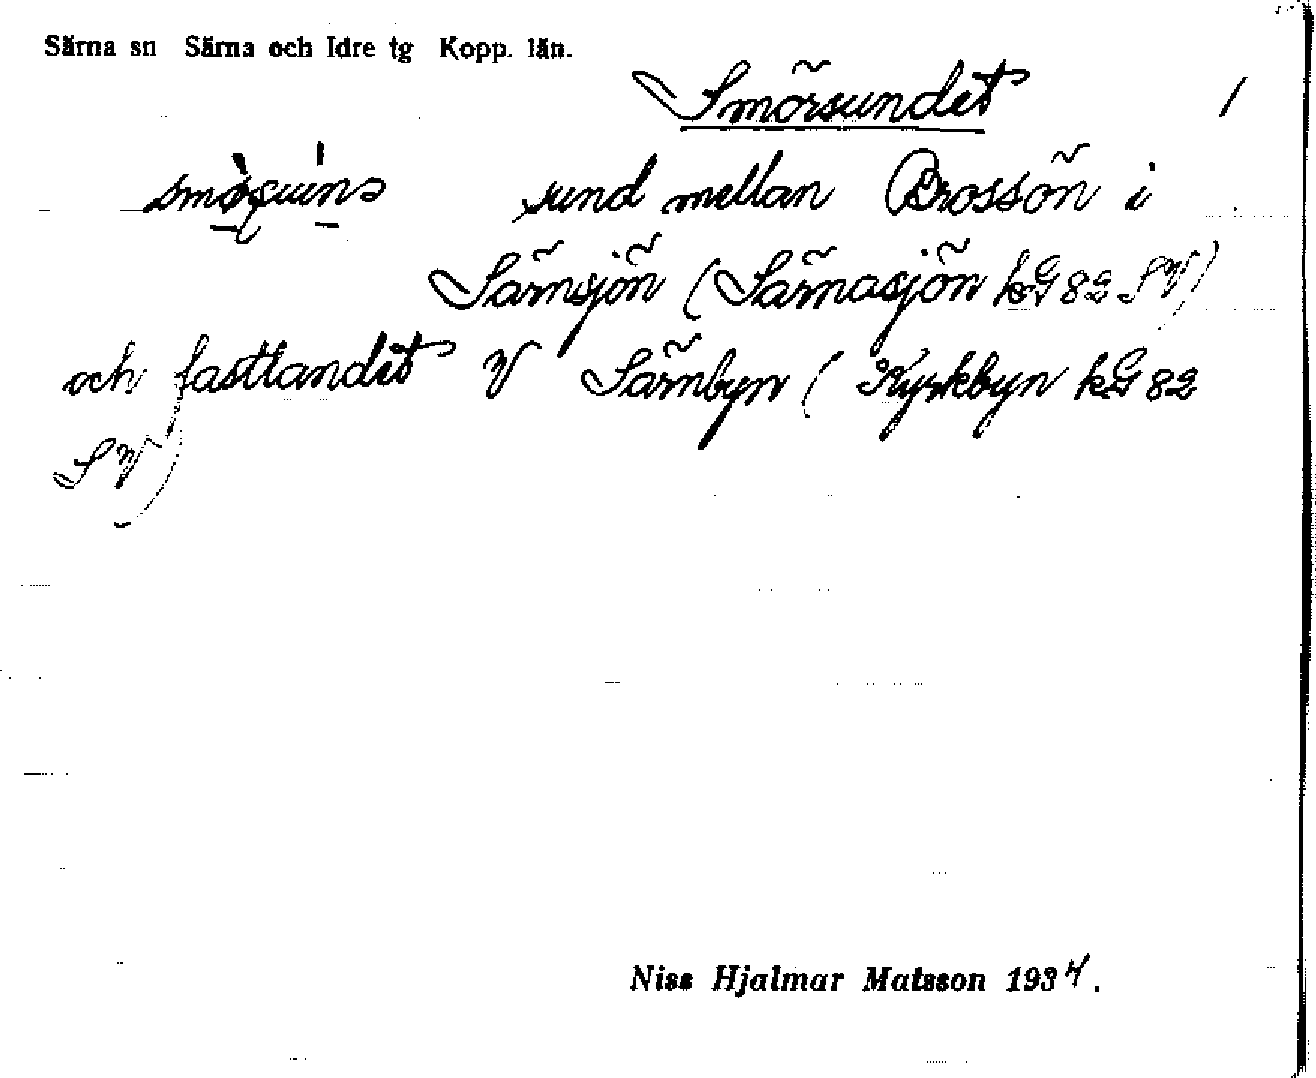 Särna sn Särna och Idre tg Kopp. län.
Smörsundet 1
sund mellan Brossön i
Särnsjön (Särnasjön kG 82 SV)
och fastlandet V Särnbyn (Kyrkbyn kG 82
SV)
Niss Hjalmar Matsson 1934.